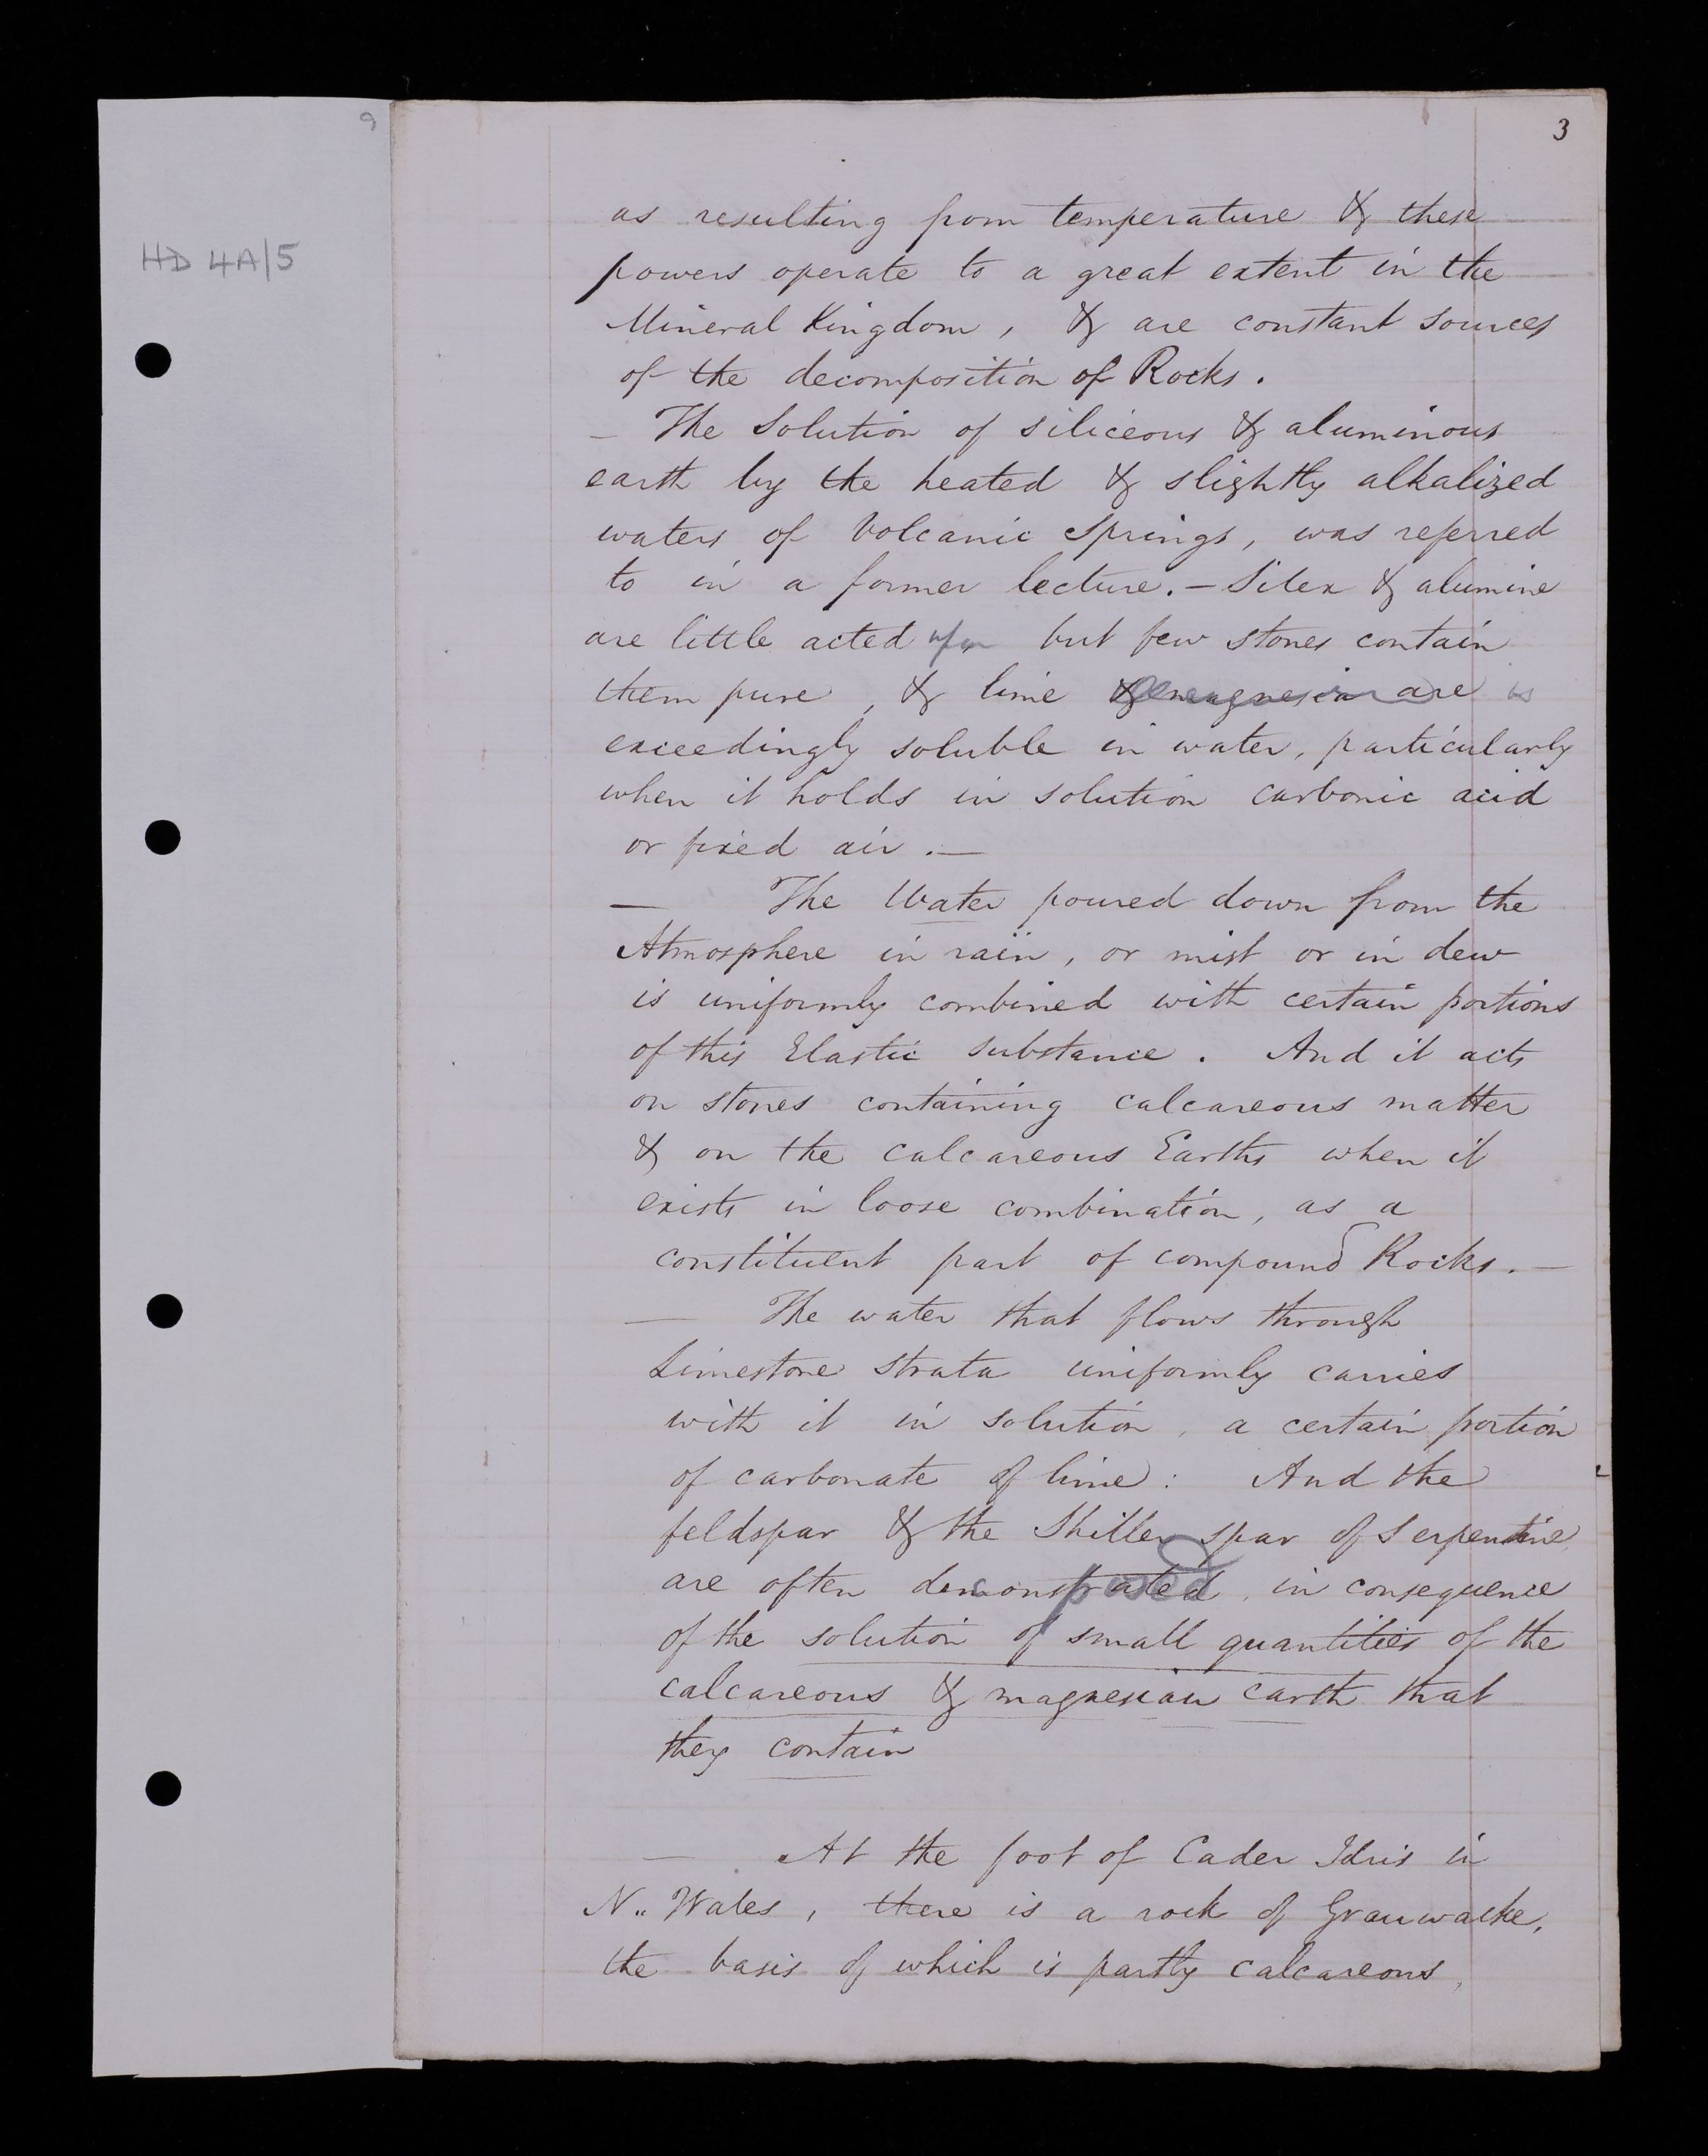 9
3
HD 4A/5
as resulting from temperature & these
powers operate to a great extent in the
Mineral Kingdom, & are constant sources
of the decomposition of Rocks.
— The Solution of siliceous & aluminous
earth by the heated & slightly alkalized
waters of Volcanic Springs, was referred
to in a former lecture. — Silex & alumine
are little acted upon but few stones contain
them pure, & lime & magnesia are is
exceedingly soluble in water, particularly
when it holds in solution carbonic acid
or fixed air. —
— The Water poured down from the
Atmosphere in rain, or mist or in dew
is uniformly combined with certain portions
of this Elastic substance. And it acts
on stones containing calcareous matter
& on the calcareous Earths when it
exists in loose combination, as a
constituent part of compound Rocks. —
— The water that flows through
Limestone strata uniformly carries
with it in solution, a certain portion
of carbonate of lime: And the
feldspar & the Shiller spar of Serpentine,
are often demonstrated, in consequence
of the solution of small quantities of the
calcareous & magnesian earth that
they contain
— At the foot of Cader Idris in
N.. Wales, there is a rock of Grauwacke,
the basis of which is partly calcareous,